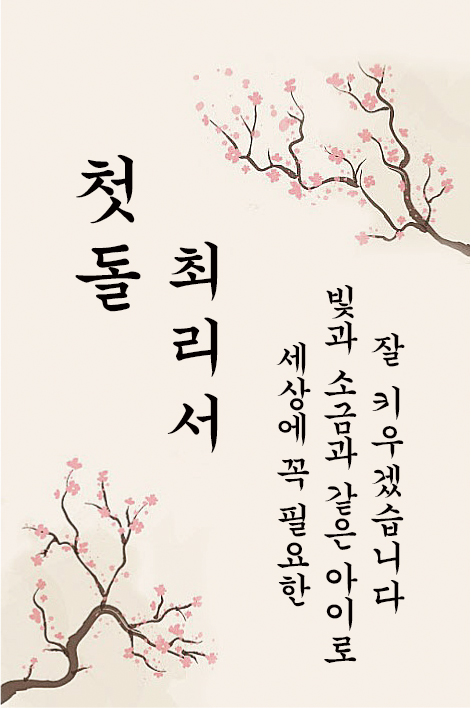 첫돌
최리서
세상에 꼭 필요한
빛과 소금과 같은 아이로
잘 키우겠습니다